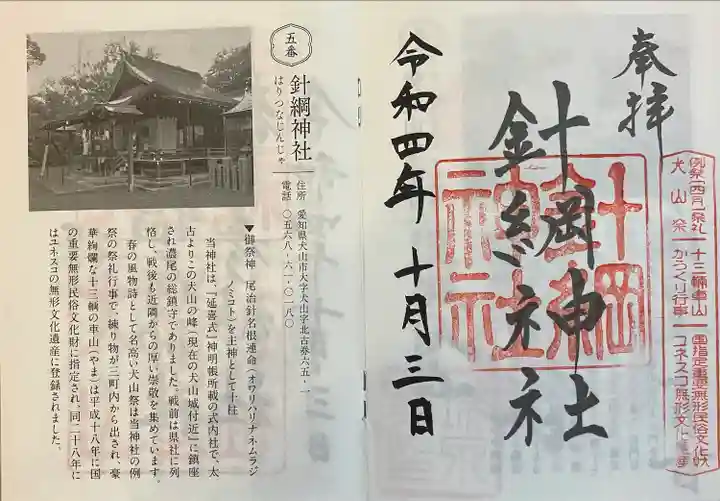 奉拝
針綱神社
令和四年十月三日
例祭【四月】祭礼
犬山祭
十三輛車山
からくり行事
国指定重要無形民俗文化財
ユネスコ無形文化遺産
五番
針綱神社
はりつなじんじゃ
住所 愛知県犬山市大字犬山字北古券六五‐一
電話 〇五六八‐六一‐〇一八〇
▼御祭神 尾治針名根連命(オワリハリナネムラジ
ノミコト)を主神として十柱
当神社は、『延喜式』神明帳所載の式内社で、太
古よりこの犬山の峰(現在の犬山城付近)に鎮座
され濃尾の総鎮守でありました。戦前は県社に列
格し、戦後も近隣からの厚い崇敬を集めています。
春の風物詩として名高い犬山祭は当神社の例
祭の祭礼行事で、練り物が三町内から出され、豪
華絢爛な十三輌の車山(やま)は平成十八年に国
の重要無形民俗文化財に指定され、同二十八年に
はユネスコの無形文化遺産に登録されました。